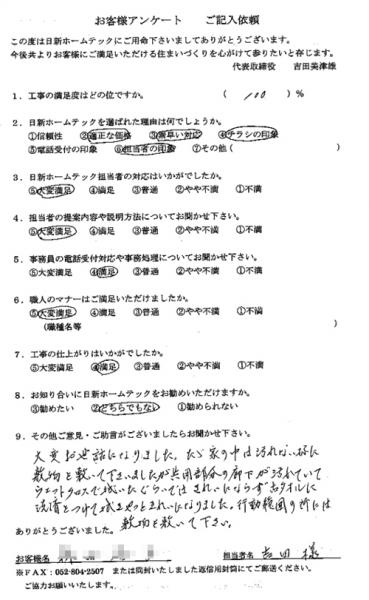 お客様アンケート　ご記入依頼
この度は日新ホームテックにご用命下さいましてありがとうございます。
今後共よりお客様にご満足いただける住まいづくりを心がけて参りたいと存じます。
代表取締役　吉田美津雄
1．工事の満足度はどの位ですか。　（　100　）％
2．日新ホームテックを選ばれた理由は何でしょうか。
①信頼性　②適正な価格　③素早い対応　④チラシの印象
⑤電話受付の印象　⑥担当者の印象　⑦その他（　）
3．日新ホームテック担当者の対応はいかがでしたか。
⑤大変満足　④満足　③普通　②やや不満　①不満
4．担当者の提案内容や説明方法についてお聞かせ下さい。
⑤大変満足　④満足　③普通　②やや不満　①不満
5．事務員の電話受付対応や事務処理についてお聞かせ下さい。
⑤大変満足　④満足　③普通　②やや不満　①不満
6．職人のマナーはご満足いただけましたか。
⑤大変満足　④満足　③普通　②やや不満　①不満
（職種名等　）
7．工事の仕上がりはいかがでしたか。
⑤大変満足　④満足　③普通　②やや不満　①不満
8．お知り合いに日新ホームテックをお勧めいただけますか。
③勧めたい　②どちらでもない　①勧められない
9．その他ご意見・ご助言がございましたらお聞かせ下さい。
大変お世話になりました。ただ家の中は汚れない様に
敷物を敷いて下さいましたが共用部分の廊下が汚れていて
ウエットクロスで拭いたぐらいではきれいにならずタオルに
洗剤をつけて拭きやっときれいにしました。行動範囲の所には
敷物を敷いて下さい。
ありがとうございました。
お客様名　担当者名　吉田　様
※FAX：052-804-2507　または同封いたしました返信用封筒にてご郵送ください。
ご協力お願いいたします。